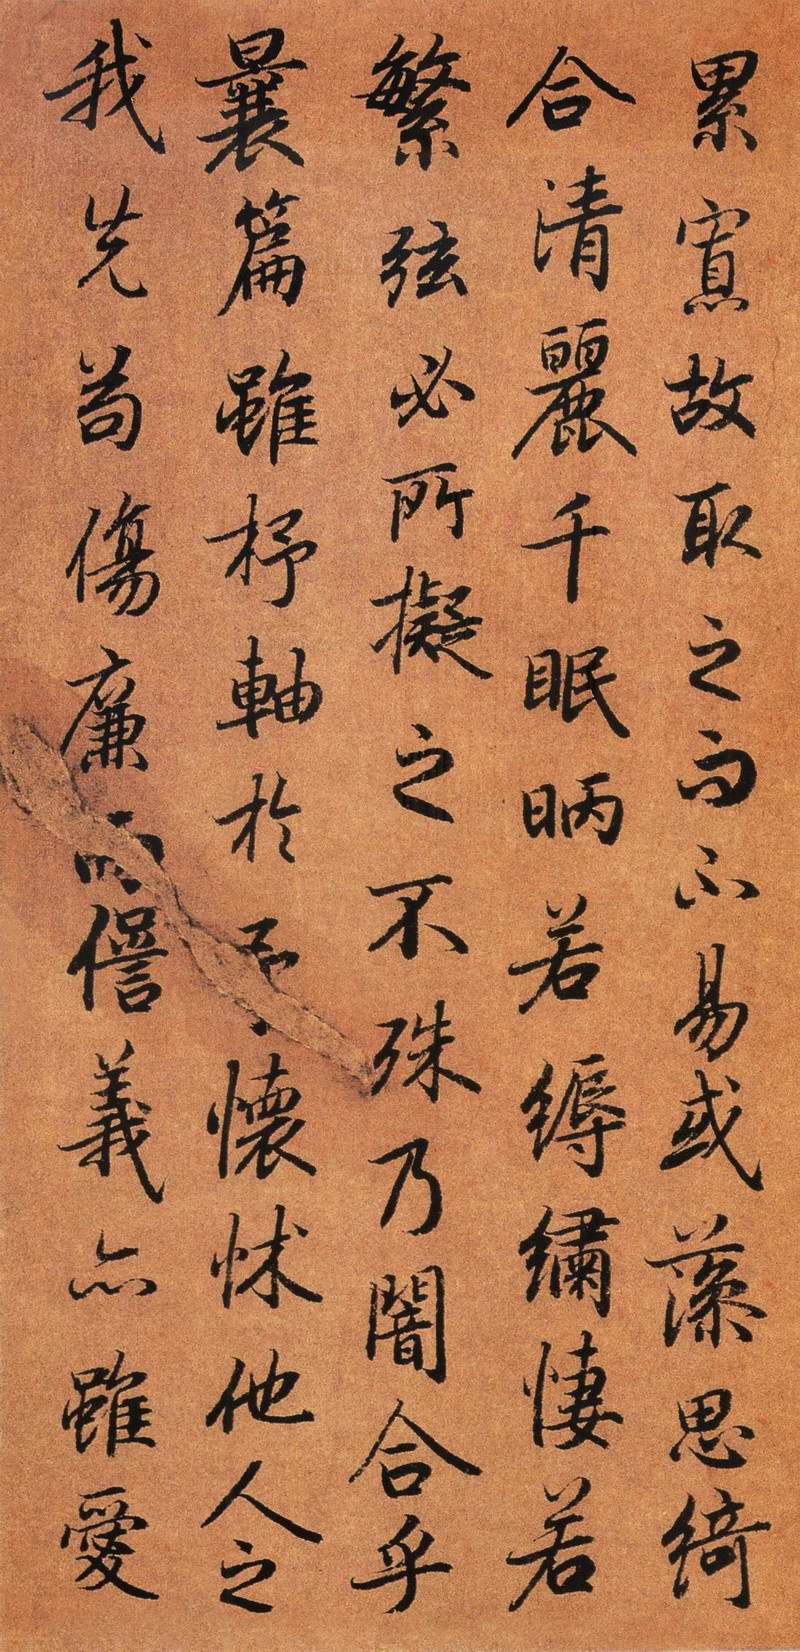 累寡故取之而不易或藻思綺
合清麗千眠昞若縟繡悽若
繁弦必所擬之不殊乃闇合乎
曩篇雖杼軸於予懷怵他人之
我先苟傷廉而僁義亦雖愛